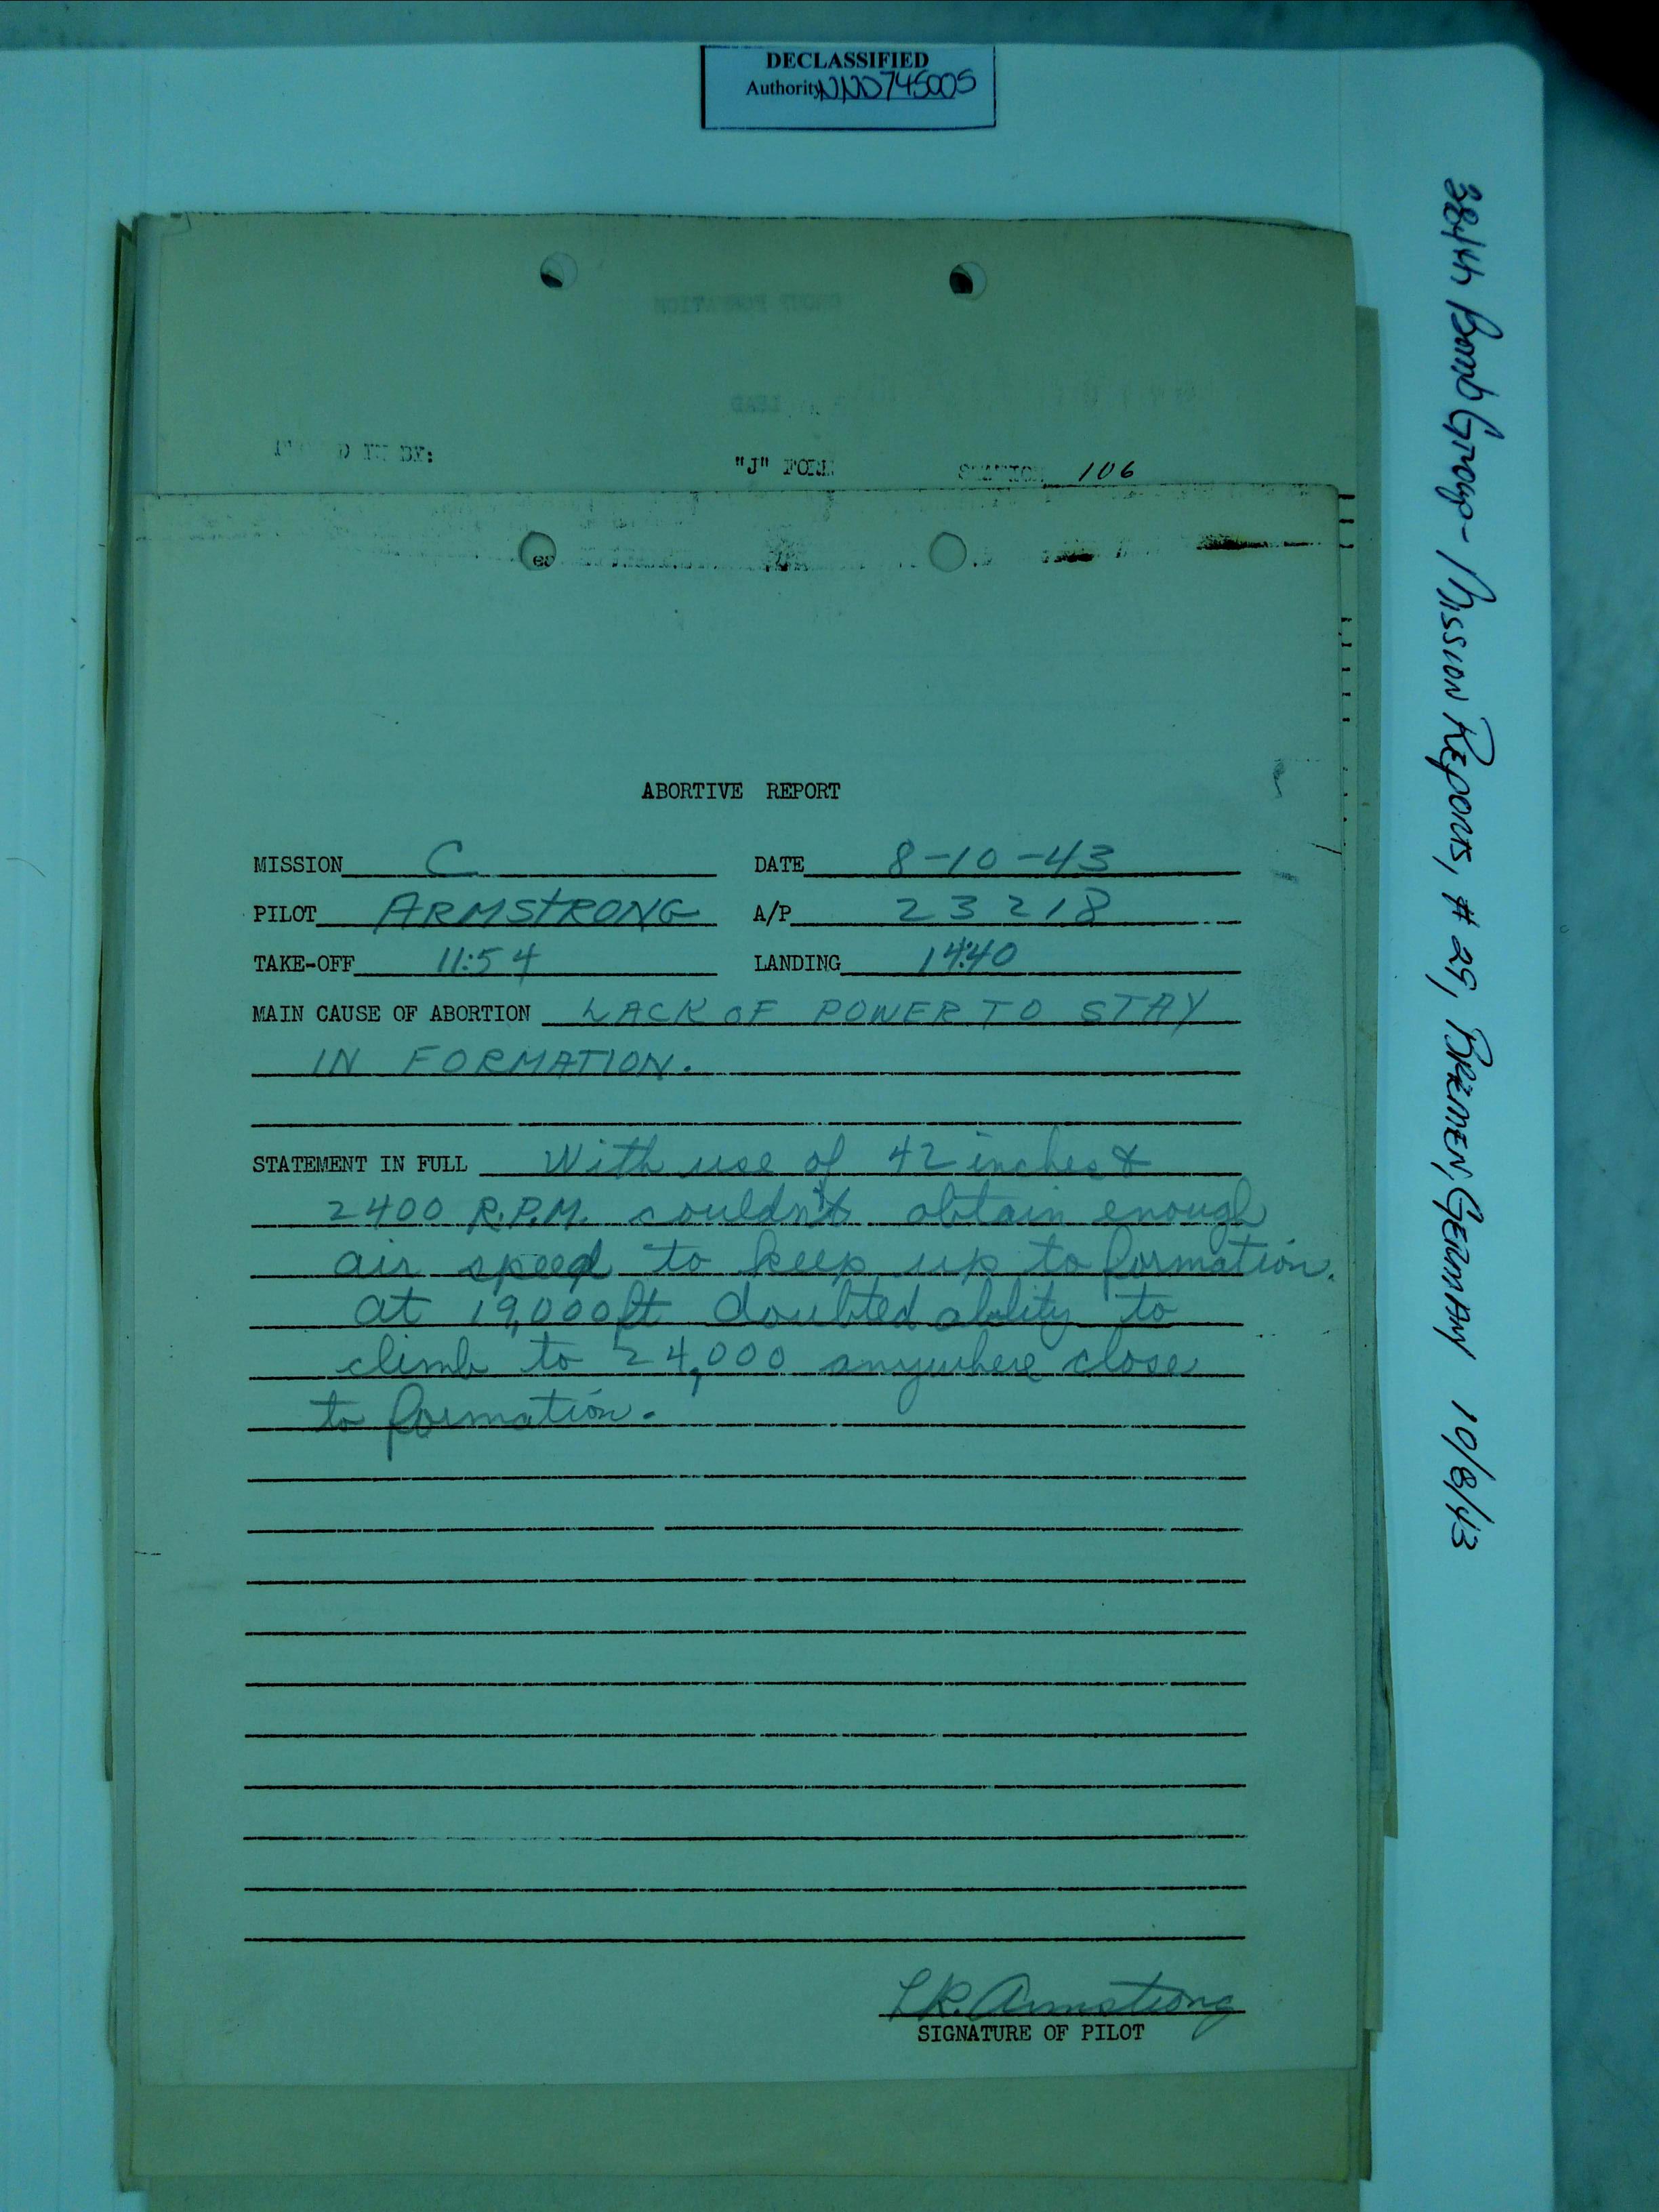 DECLASSIFIED
Authority NND745005
384th Bomb Group - Mission Reports, # 25, BREMEN, GERMANY 10/8/43
BY:
"J" FORM 106
ABORTIVE REPORT
MISSION C DATE 8-10-43
PILOT ARMSTRONG A/P 23218
TAKE-OFF 11:54 LANDING 14:40
MAIN CAUSE OF ABORTION LACK OF POWER TO STAY
IN FORMATION.
STATEMENT IN FULL With use of 42 inches &
2400 R.P.M. couldn't obtain enough
air speed to keep up to formation.
at 19,000 ft doubted ability to
climb to 24,000 anywhere close
to formation.
L.R. Armstrong
SIGNATURE OF PILOT